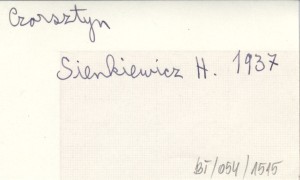 Czorsztyn
Sienkiewicz H. 1937
BI/054/1515